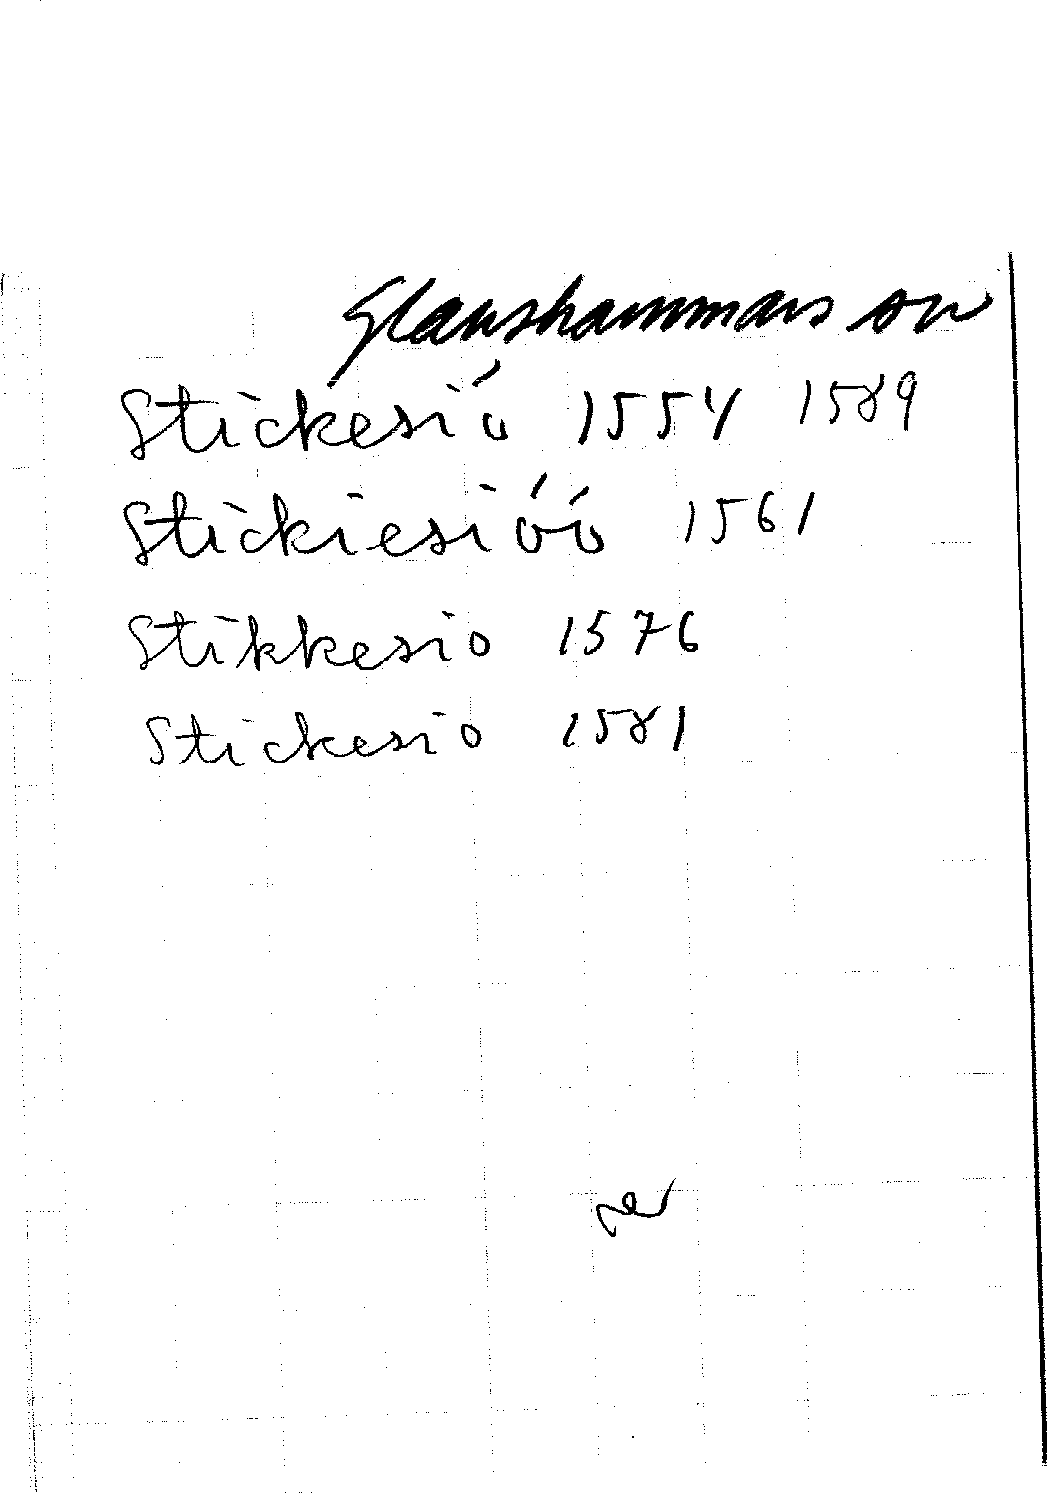 Glanshammars sn
Stickesió 1554 1589
Stickiesióó 1561
Stikkesio 1576
Stickesio 1581